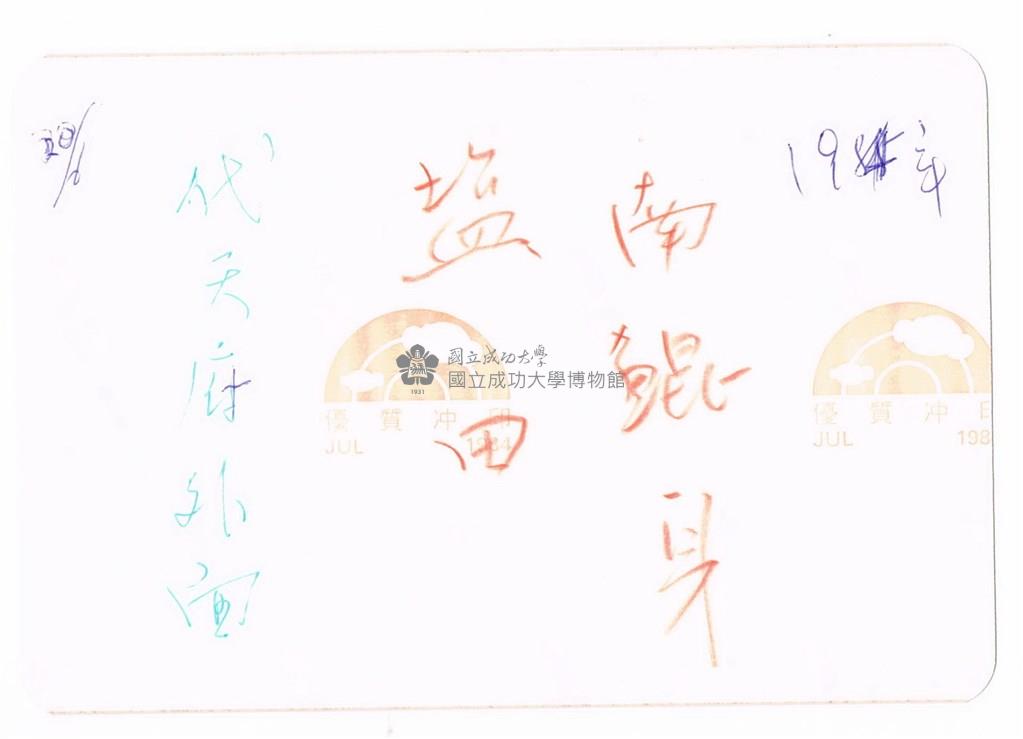 南鯤身
塩田
代天府外面
國立成功大學
國立成功大學博物館
1931
優質冲印
JUL 1984
優質冲印
JUL 198